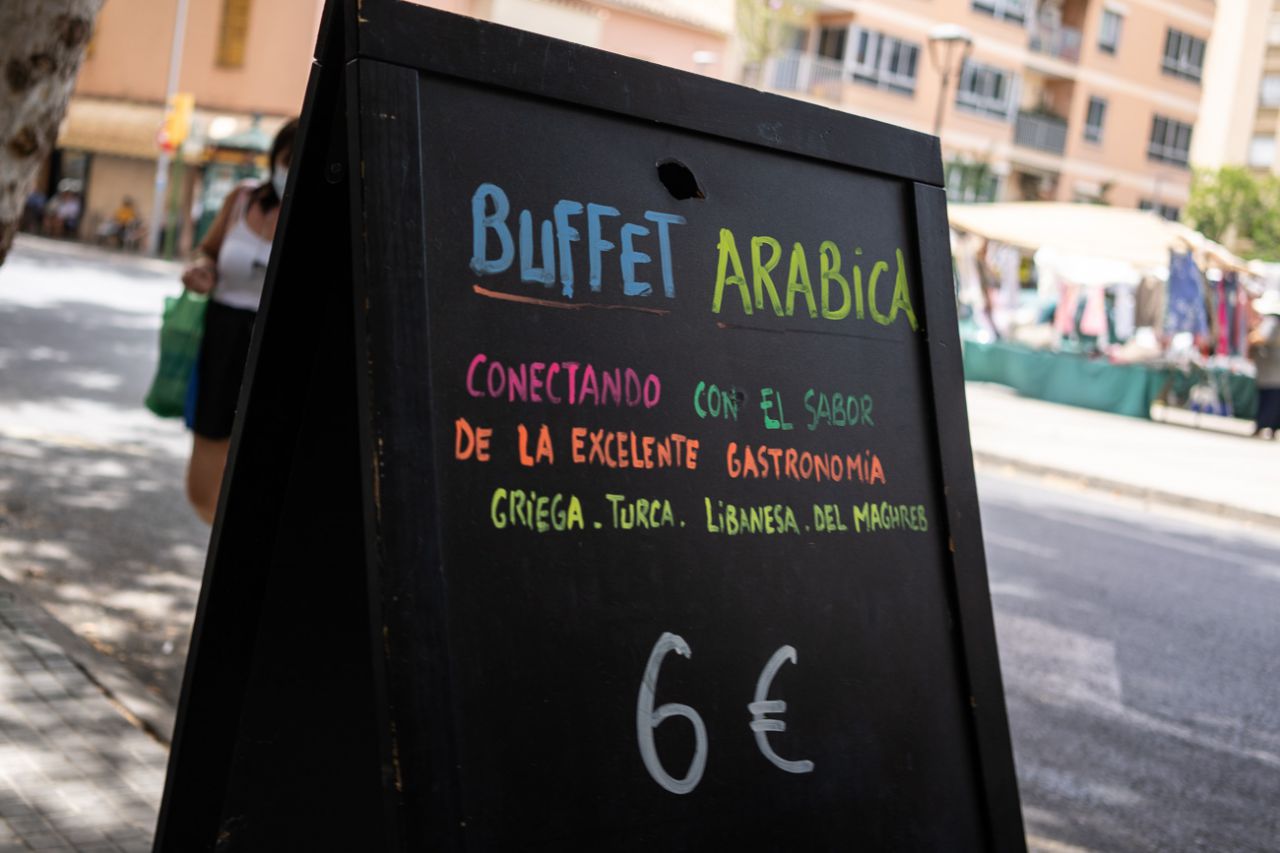 BUFFET ARABICA
CONECTANDO CON EL SABOR
DE LA EXCELENTE GASTRONOMIA
GRIEGA. TURCA. LIBANESA. DEL MAGHREB
6 €